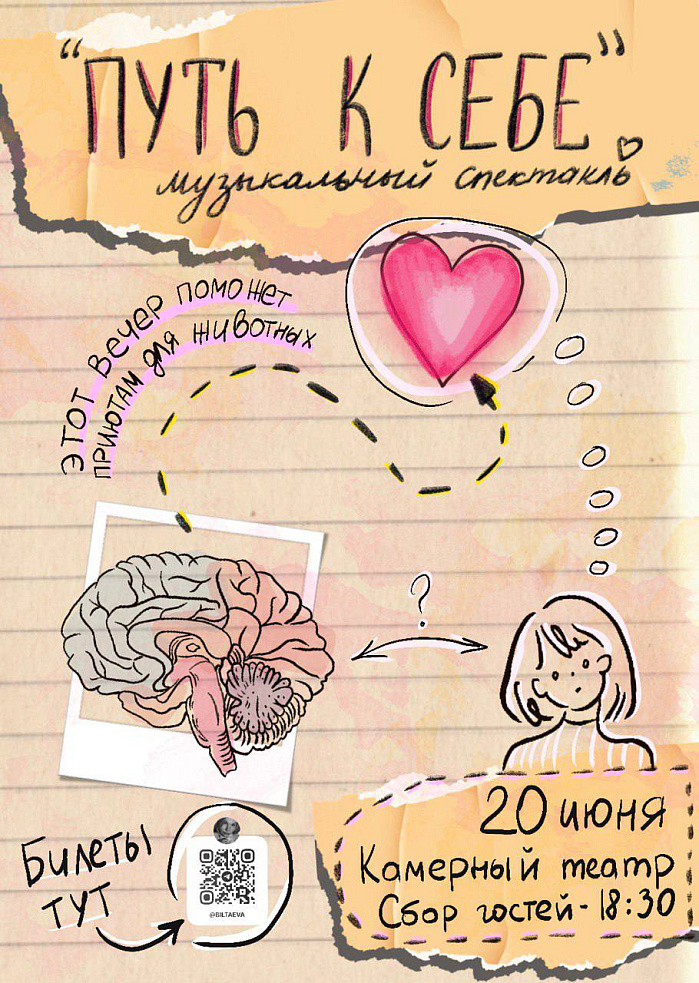 "ПУТЬ К СЕБЕ"
музыкальный спектакль
ЭТОТ ВЕЧЕР ПОМОЖЕТ
ПРИЮТАМ ДЛЯ ЖИВОТНЫХ
?
Билеты
ТУТ
@BILTAEVA
20 июня
Камерный театр
Сбор гостей - 18:30